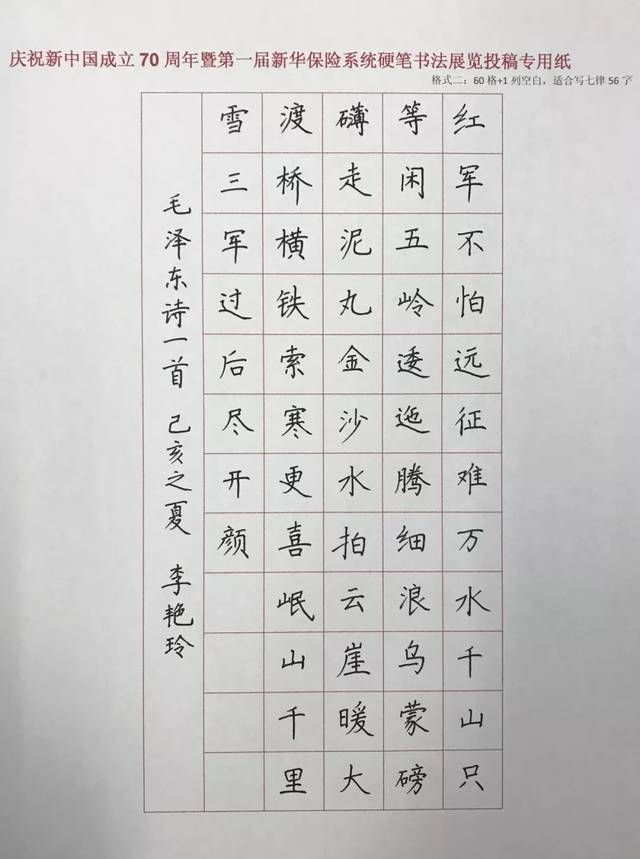 庆祝新中国成立70周年暨第一届新华保险系统硬笔书法展览投稿专用纸
格式二：60格+1列空白，适合写七律56字
红军不怕远征难万水千山只
等闲五岭逶迤腾细浪乌蒙磅
礴走泥丸金沙水拍云崖暖大
渡桥横铁索寒更喜岷山千里
雪三军过后尽开颜
毛泽东诗一首 己亥之夏 李艳玲